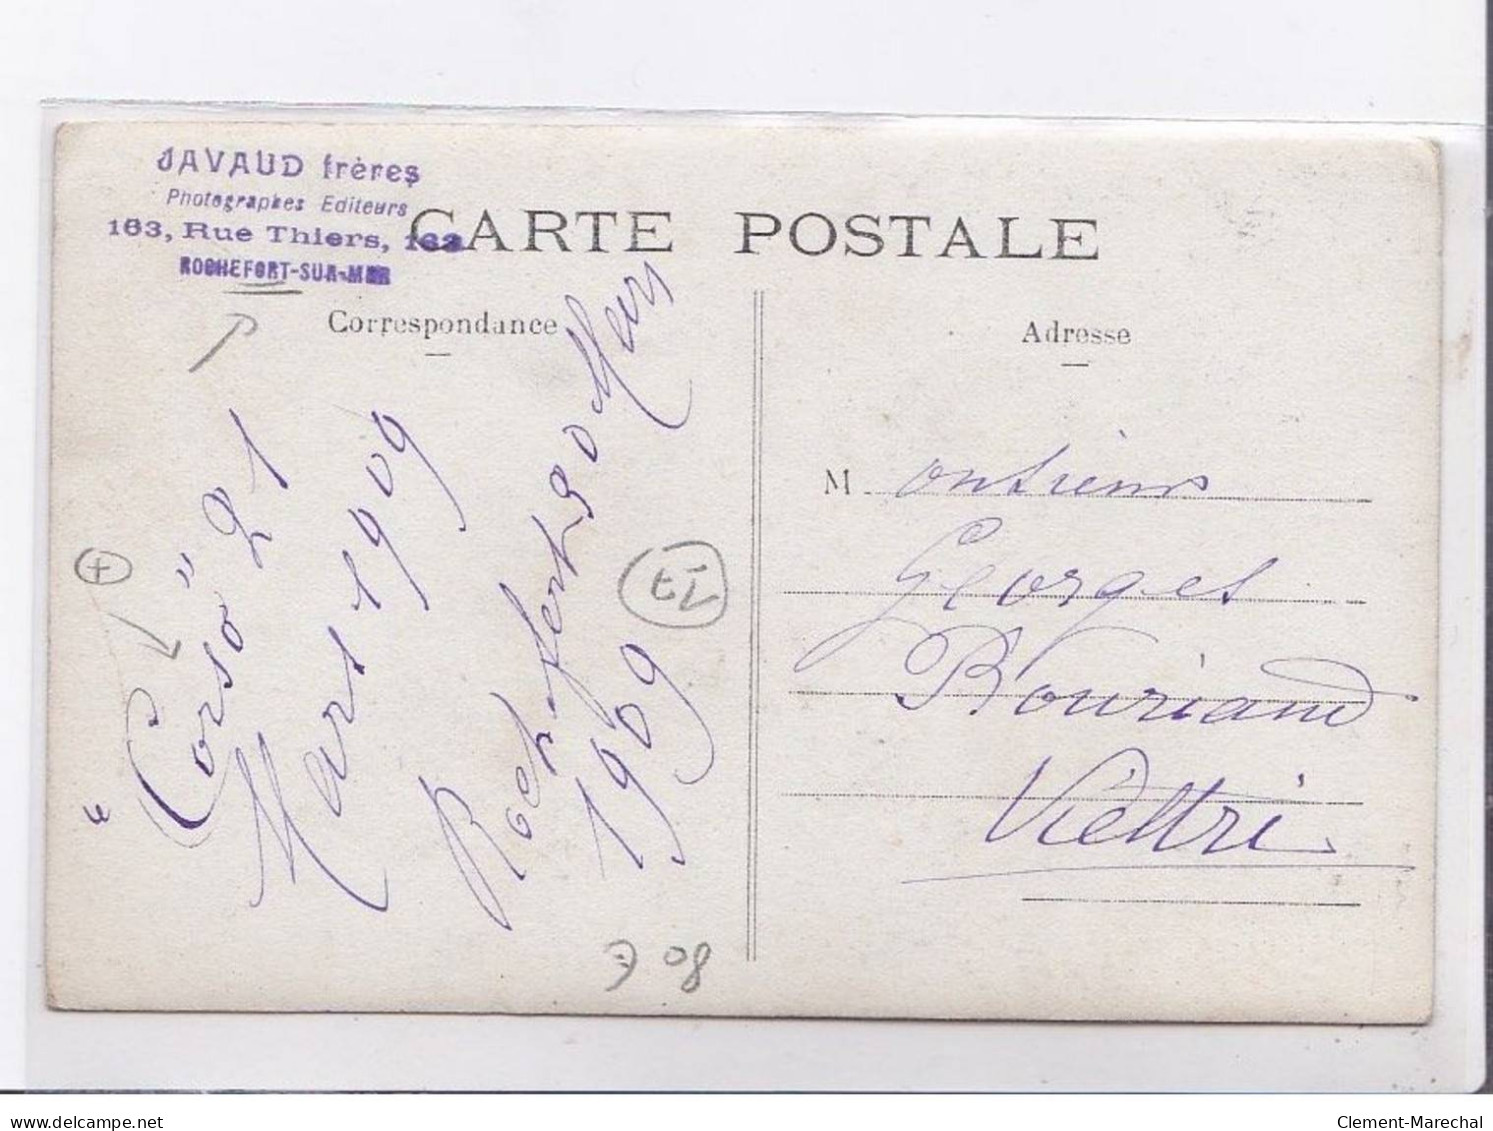 JAVAUD frères
Photographes Editeurs
163, Rue Thiers, 163
ROCHEFORT-SUR-MER
CARTE POSTALE
Correspondance
Adresse
"Corso" 21
Mars 1909
Rochefort 30 Mars
1909
Monsieur
Georges
Bouriaud
Viêltri
delcampe.net
Clement-Marechal